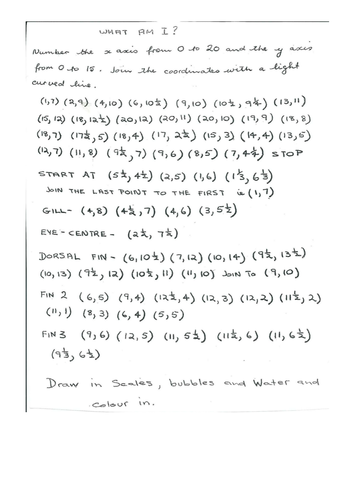 WHAT AM I?
Number the x axis from 0 to 20 and the y axis
from 0 to 15. Join the coordinates with a light
curved line.
(1,7) (2,9) (4,10) (6,10½) (9,10) (10½, 9¼) (13,11)
(15,12) (18,12½) (20,12) (20,11) (20,10) (19,9) (18,8)
(18,7) (17½,5) (18,4) (17, 2½) (15,3) (14,4) (13,5)
(12,7) (11,8) (9½,7) (9,6) (8,5) (7,4¼) STOP
START AT (5½,4½) (2,5) (1,6) (1⅓,6⅓)
JOIN THE LAST POINT TO THE FIRST ie (1,7)
GILL- (4,8) (4½,7) (4,6) (3,5½)
EYE-CENTRE- (2½, 7½)
DORSAL FIN- (6,10½) (7,12) (10,14) (9½,13½)
(10,13) (9½,12) (10½,11) (11,10) JOIN TO (9,10)
FIN 2 (6,5) (9,4) (12½,4) (12,3) (12,2) (11½,2)
(11,1) (8,3) (6,4) (5,5)
FIN 3 (9,6) (12,5) (11,5½) (11½,6) (11,6½)
(9⅓,6½)
Draw in Scales, bubbles and Water and
colour in.